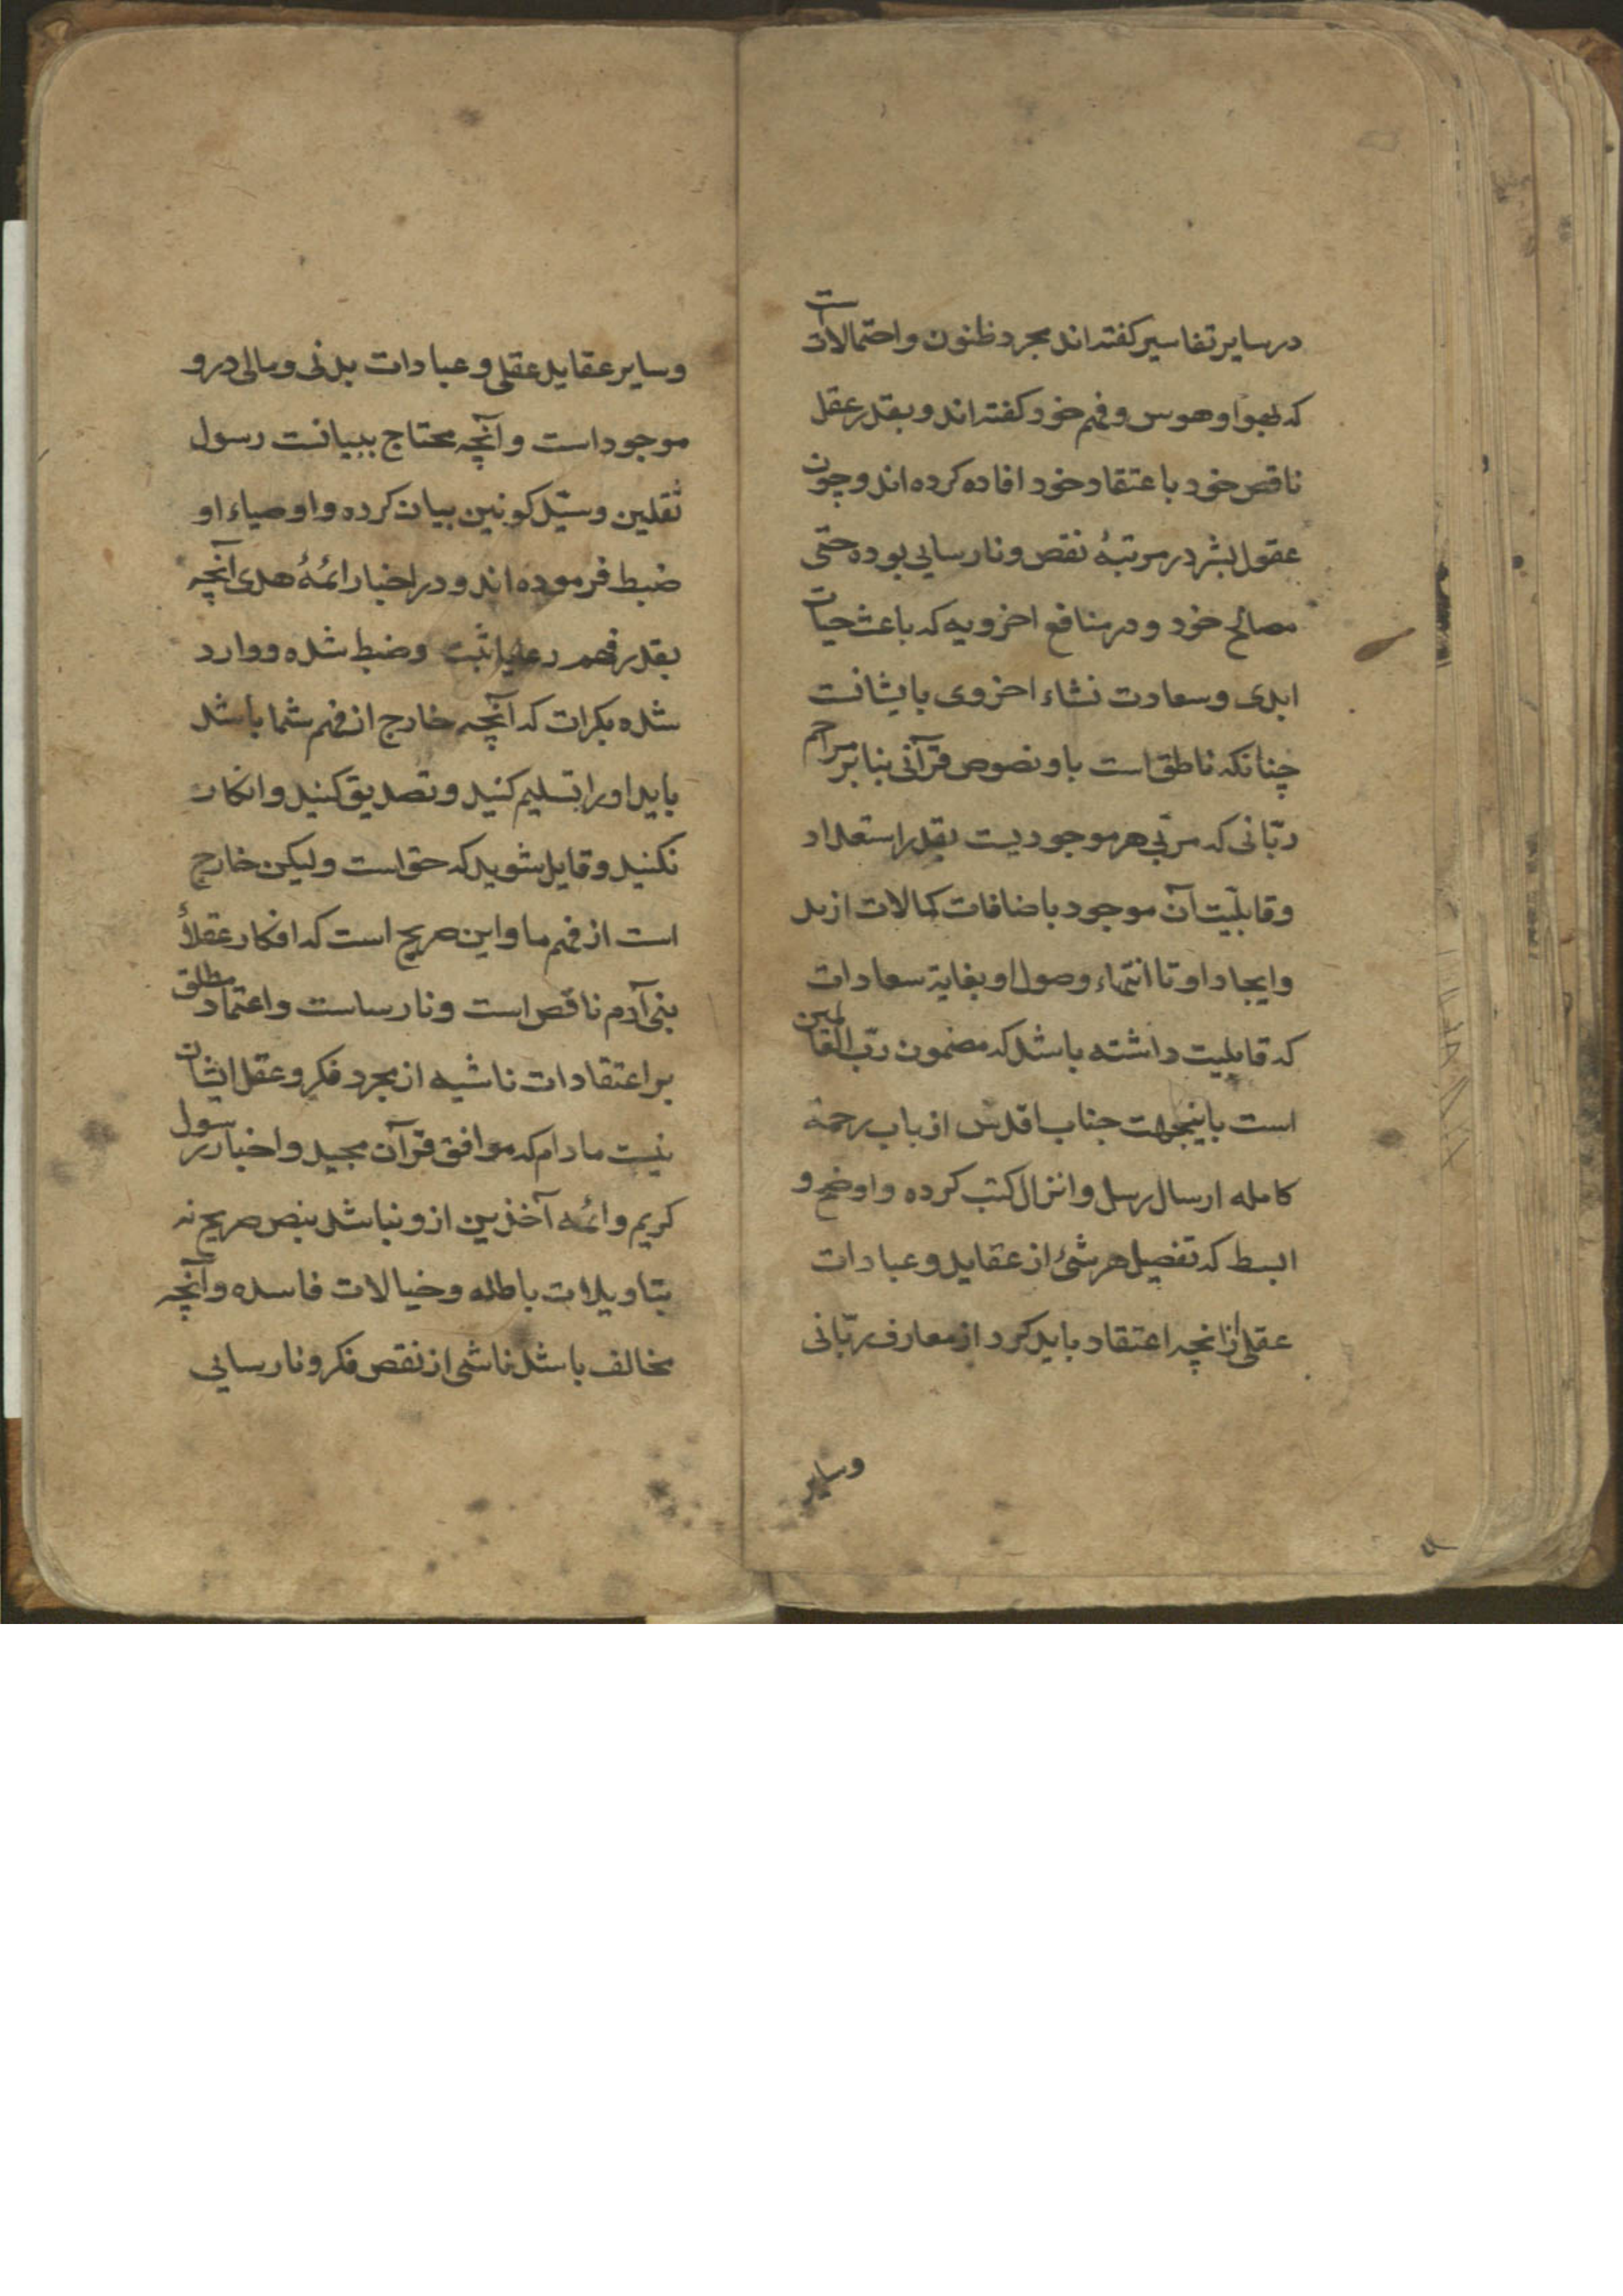 در سایر تفاسیر کفته اند مجرد ظنون و احتمالاتست
که بهوا و هوس و فهم خود کفته اند و بقدر عقل
ناقص خود باعتقاد خود افاده کرده اند و چون
عقول بشر در مرتبهٔ نقص و نارسایی بوده حتی
مصالح خود و در منافع اخرویه که باعث حیات
ابدی و سعادت نشاء اخروی بایشانت
چنانکه ناطق است باو نصوص قرآنی بنابر مراحم
ربّانی که مربّی هر موجودیست بقدر استعداد
و قابلیّت آن موجود باضافات کمالات از بد
و ایجاد او تا انتهاء وصول او بغایة سعادات
که قابلیت داشته باشد که مضمون ربّ العالمین
است باینجهت جناب اقدس از باب رحمة
کامله ارسال رسل و انزال کتب کرده و اوضح و
ابسط که تفصیل هر شئ از عقاید و عبادات
عقلی از انچه اعتقاد باید کرد از معارف ربّانی
وسایر
وسایر عقاید عقلی و عبادات بدنی و مالی درو
موجود است و آنچه محتاج ببیانت رسول
ثقلین و سیّد کونین بیان کرده و اوصیاء او
ضبط فرموده اند و در اخبار ائمهٔ هدی آنچه
بقدر فهم رعایا ثبت و ضبط شده و وارد
شده بکرات که آنچه خارج از فهم شما باشد
باید او را تسلیم کنید و تصدیق کنید و انکار
نکنید و قایل شوید که حق است ولیکن خارج
است از فهم ما و این صریح است که افکار عقلاء
بنی آدم ناقص است و نارساست و اعتماد مطلق
بر اعتقادات ناشیه از مجرد فکر و عقل ایشان
نیست مادام که موافق قرآن مجید و اخبار رسول
کریم و ائمه آخذین ازو نباشد بنص صریح نه
بتاویلات باطله و خیالات فاسده و آنچه
مخالف باشد ناشی از نقص فکر و نارسایی